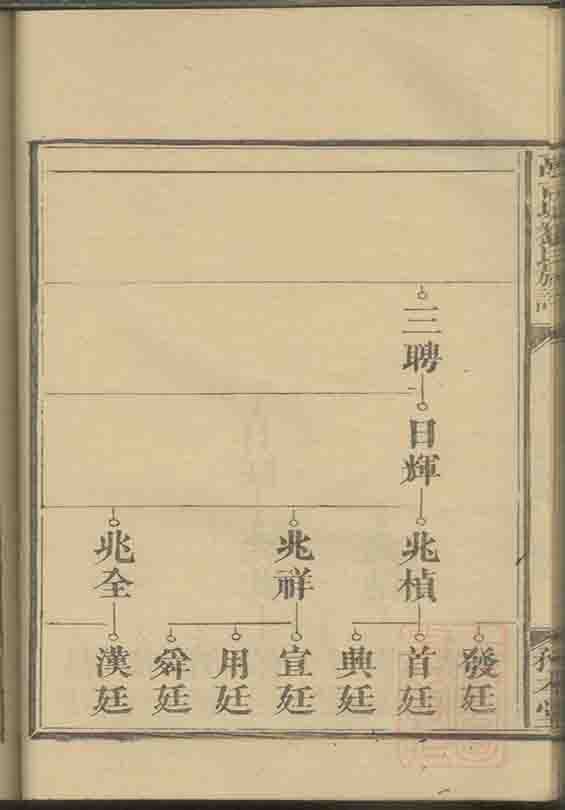 三聘
日輝
兆楨
兆祥
兆全
發廷
首廷
興廷
宣廷
用廷
舜廷
漢廷